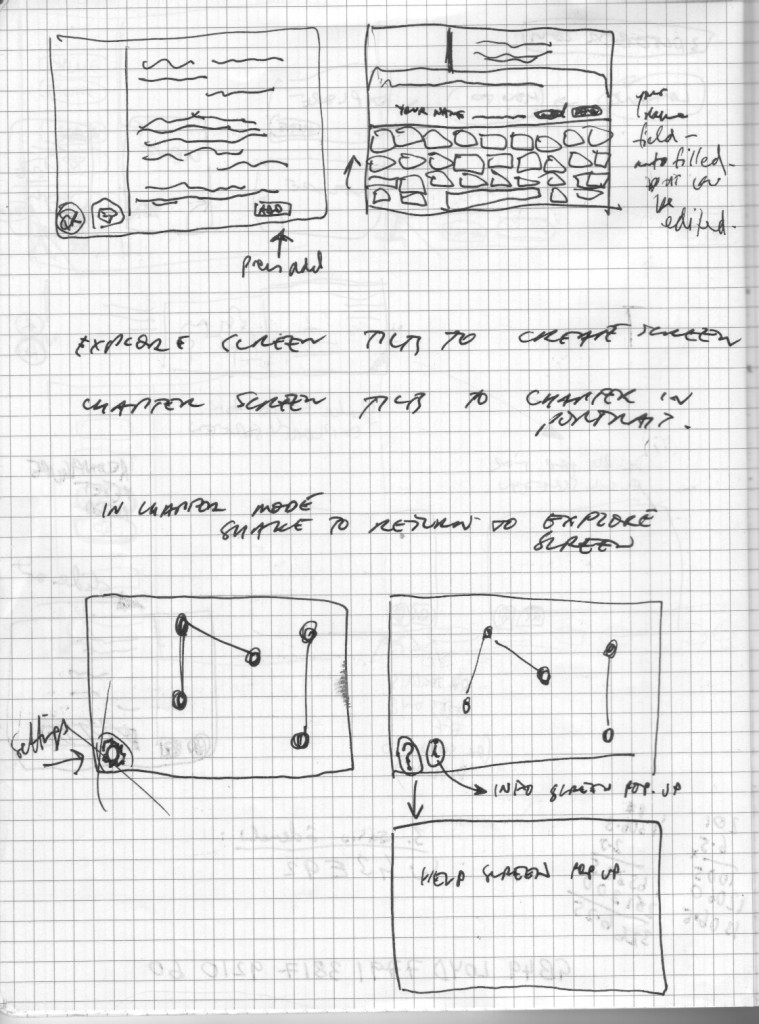 ADD
press add
YOUR NAME
your
name
field -
auto filled -
but can
be
edited.
EXPLORE SCREEN TILTS TO CREATE SCREEN
CHAPTER SCREEN TILTS TO CHAPTER IN
PORTRAIT.
IN CHAPTER MODE
SHAKE TO RETURN TO EXPLORE
SCREEN
settings
? i
INFO SCREEN POP-UP
HELP SCREEN POP UP